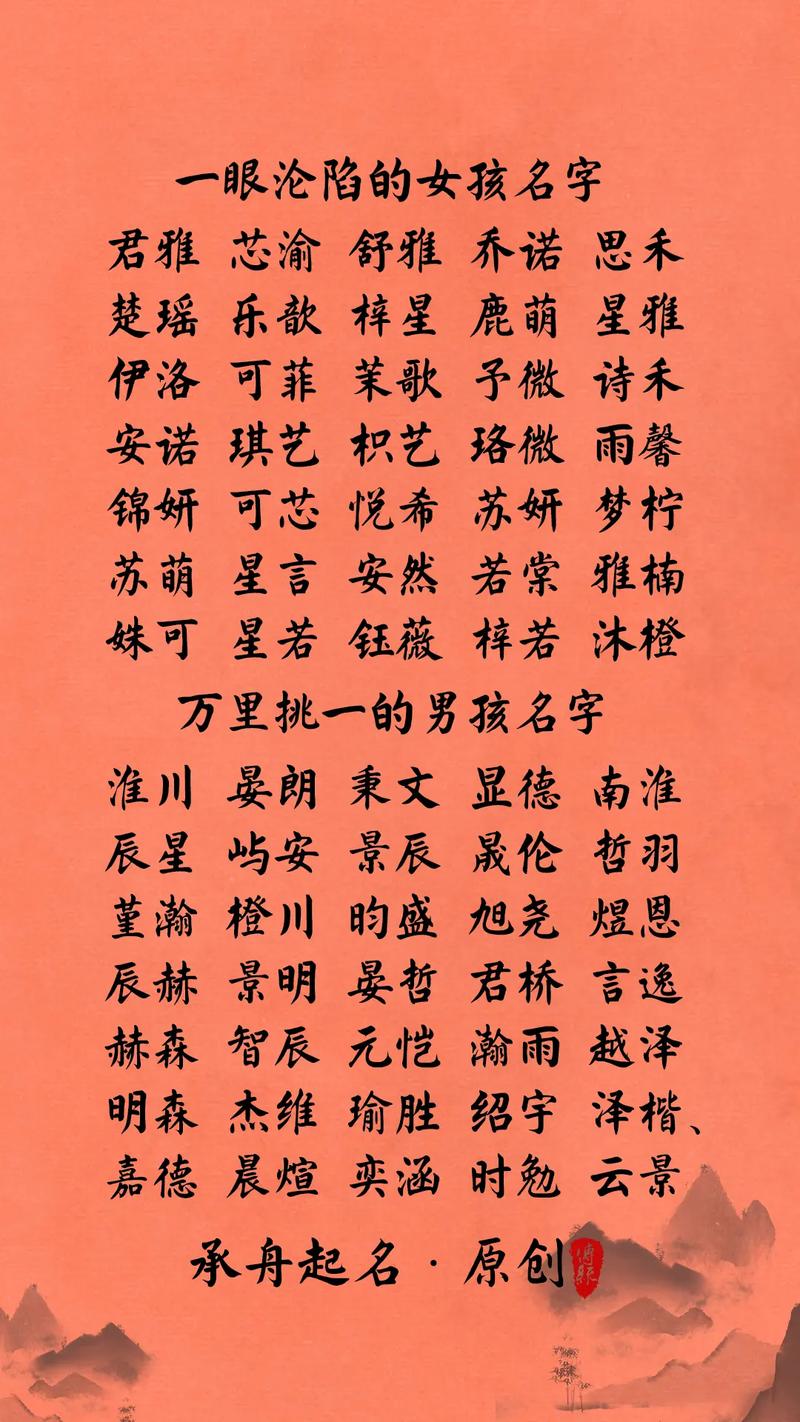 一眼沦陷的女孩名字
君雅 芯渝 舒雅 乔诺 思禾
楚瑶 乐歆 梓星 鹿萌 星雅
伊洛 可菲 茉歌 予微 诗禾
安诺 琪艺 枳艺 珞微 雨馨
锦妍 可芯 悦希 苏妍 梦柠
苏萌 星言 安然 若棠 雅楠
姝可 星若 钰薇 梓若 沐橙
万里挑一的男孩名字
淮川 晏朗 秉文 显德 南淮
辰星 屿安 景辰 晟伦 哲羽
堇瀚 橙川 昀盛 旭尧 煜恩
辰赫 景明 晏哲 君桥 言逸
赫森 智辰 元恺 瀚雨 越泽
明森 杰维 瑜胜 绍宇 泽楷、
嘉德 晨煊 奕涵 时勉 云景
承舟起名·原创